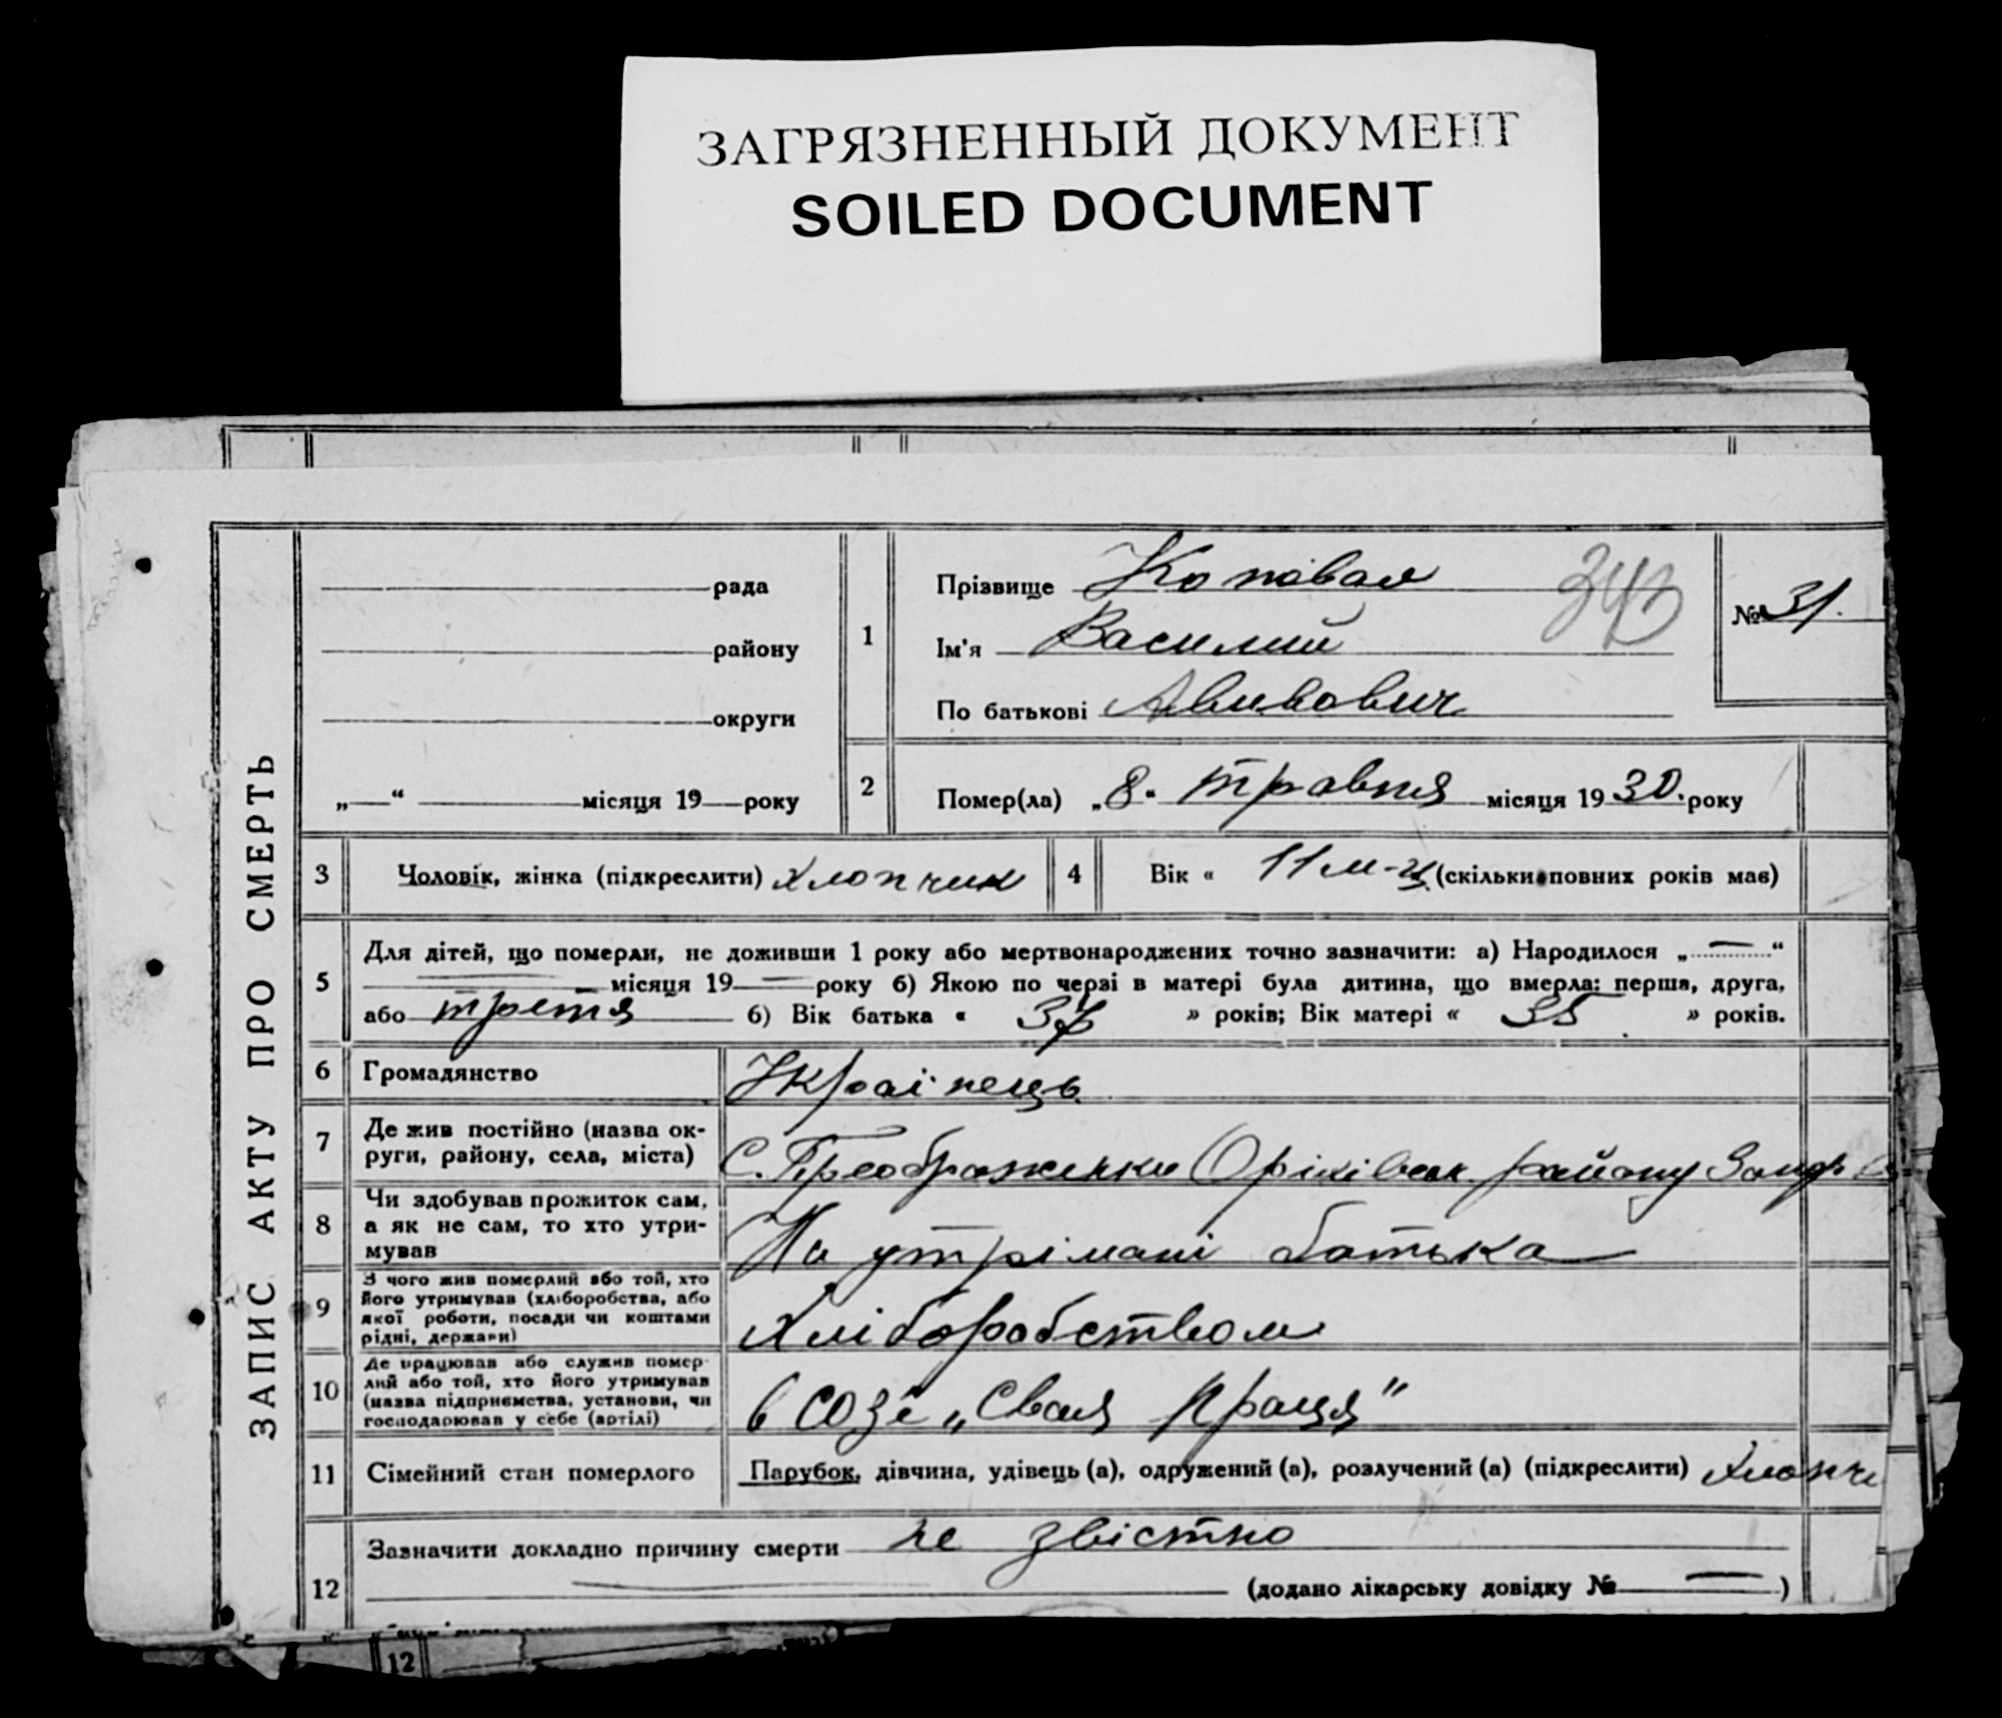 ЗАГРЯЗНЕННЫЙ ДОКУМЕНТ
SOILED DOCUMENT
ЗАПИС АКТУ ПРО СМЕРТЬ
рада
району
округи
„ “ місяця 19 року
1
Прізвище Коповал
Ім'я Василий
По батькові
343
№ 31.
2
Помер(ла) „8“ травня місяця 1930. року
3
Чоловік, жінка (підкреслити) хлопчик
4
Вік « 11 м-ц (скільки повних років має)
5
Для дітей, що померли, не доживши 1 року або мертвонароджених точно зазначити: а) Народилося „—“
— місяця 19— року б) Якою по черзі в матері була дитина, що вмерла: перша, друга,
або третя б) Вік батька « 37 » років; Вік матері « 35 » років.
6
Громадянство
Українець
7
Де жив постійно (назва ок-
руги, району, села, міста)
С. Преображенка Оріхівськ. району Запор
8
Чи здобував прожиток сам,
а як не сам, то хто утри-
мував
На утрімані батька
9
З чого жив померлий або той, хто
його утримував (хліборобства, або
якої роботи, посади чи коштами
рідні, держави)
Хліборобством
10
Де працював або служив помер-
лий або той, хто його утримував
(назва підприємства, установи, чи
господарював у себе (артілі)
в созі „Своя праця”
11
Сімейний стан померлого
Парубок, дівчина, удівець (а), одружений (а), розлучений (а) (підкреслити) хлопч
12
Зазначити докладно причину смерти не звістно
(додано лікарську довідку № — )
12